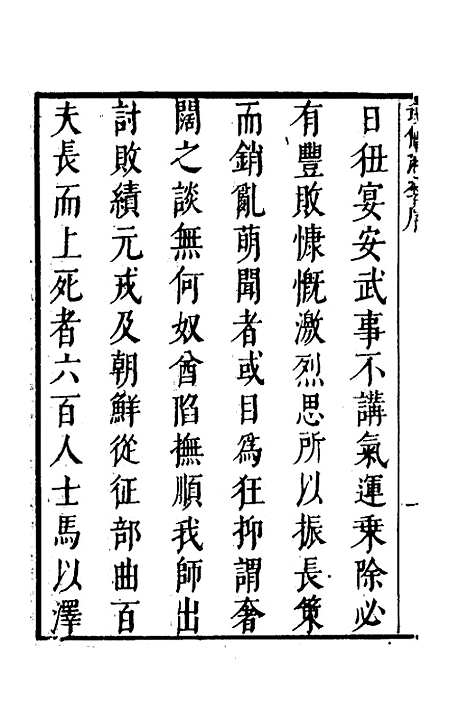 日狃宴安武事不講氣運乗除必
有豐敗慷慨激烈思所以振長策
而銷亂萌聞者或目為狂抑謂奢
闊之談無何奴酋陷撫順我師出
討敗績元戎及朝鮮從征部曲百
夫長而上死者六百人士馬以澤